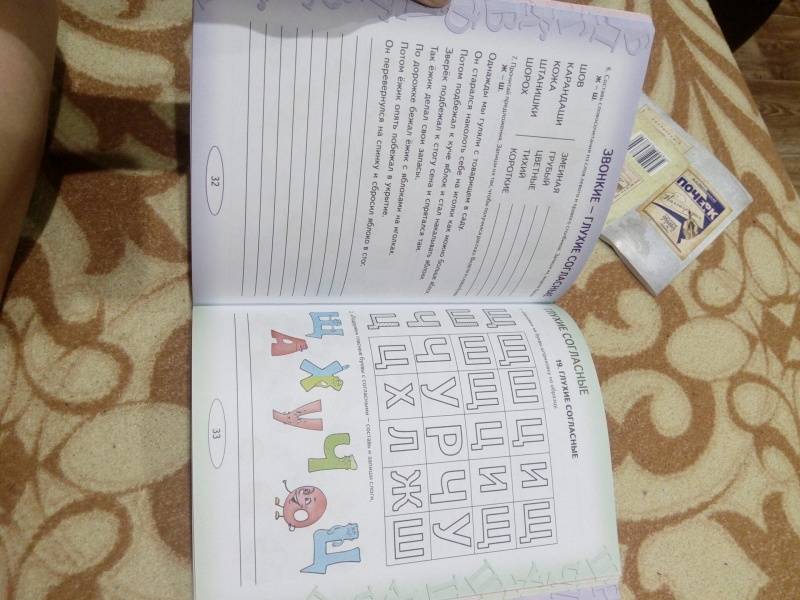 ЗВОНКИЕ – ГЛУХИЕ СОГЛАСНЫЕ
Ж – Ш.
ШОВ
КАРАНДАШИ
КОЖА
ШТАНИШКИ
ШОРОХ
ЗМЕИНАЯ
ГРУБЫЙ
ЦВЕТНЫЕ
ТИХИЙ
КОРОТКИЕ
7. Прочитай предложения. Запиши их так, чтобы получился рассказ.
Ж – Ш.
Однажды мы гуляли с товарищем в саду.
Он старался наколоть себе на иголки как можно больше яблок.
Потом подбежал к куче яблок и стал накалывать яблоки.
Зверёк подбежал к стогу сена и спрятался там.
Так ёжик делал свои запасы.
По дорожке бежал ёжик с яблоками на иголках.
Потом ёжик опять побежал в укрытие.
Он перевернулся на спинку и сбросил яблоко в стог.
32
ГЛУХИЕ СОГЛАСНЫЕ
19. ГЛУХИЕ СОГЛАСНЫЕ
Щ Щ Ц И Щ
Ш Щ Ц И Щ
Ч Ч У Р Ч У
Ц Ц Х Л Ж Ш
гласные буквы с согласными – составь и запиши слоги.
Ш Х У Ч О Ц
А И
33
ПОЧЕРК